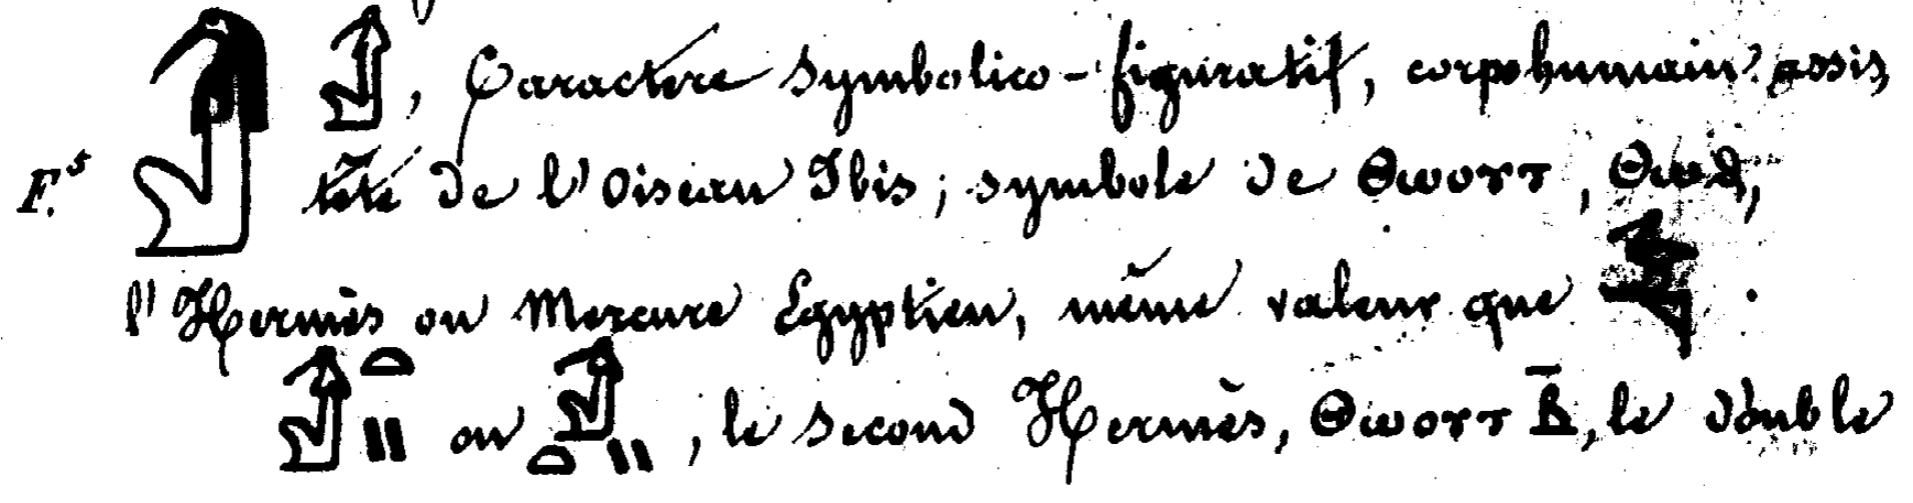 , Caractère Symbolico-figuratif, corps humain assis
F.⁵ tête de l'Oiseau Ibis; symbole de Ⲑⲱⲟⲩⲧ, Ⲑⲱⲑ,
l'Hermès ou Mercure Egyptien, même valeur que .
ou , le second Hermès, Ⲑⲱⲟⲩⲧ Ⲃ̄, le double